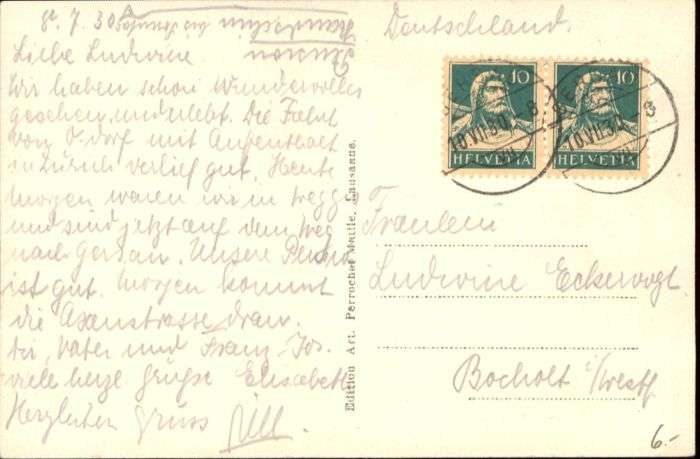 8. 7. 30.
Liebe Ludwine
Wir haben schon wundervolles
gesehen und erlebt. Die Fahrt
von O.dorf mit Aufenthalt
in Zürich verlief gut. Heute
Morgen waren wir in Wegg
und sind jetzt auf dem Weg
nach Gersau. Unsere
ist gut. Morgen kommt
die Axenstrasse dran.
Dir, Vater und Franz Jos.
viele herzl Grüße Elisabeth
Herzlichen Gruss
Edition Art. Perrochet Matile, Lausanne.
Deutschland.
10 10
HELVETIA HELVETIA
10.VII.30 10.VII.30
Fräulein
Ludwine Eckervogt
Bocholt i/Westf
6.-